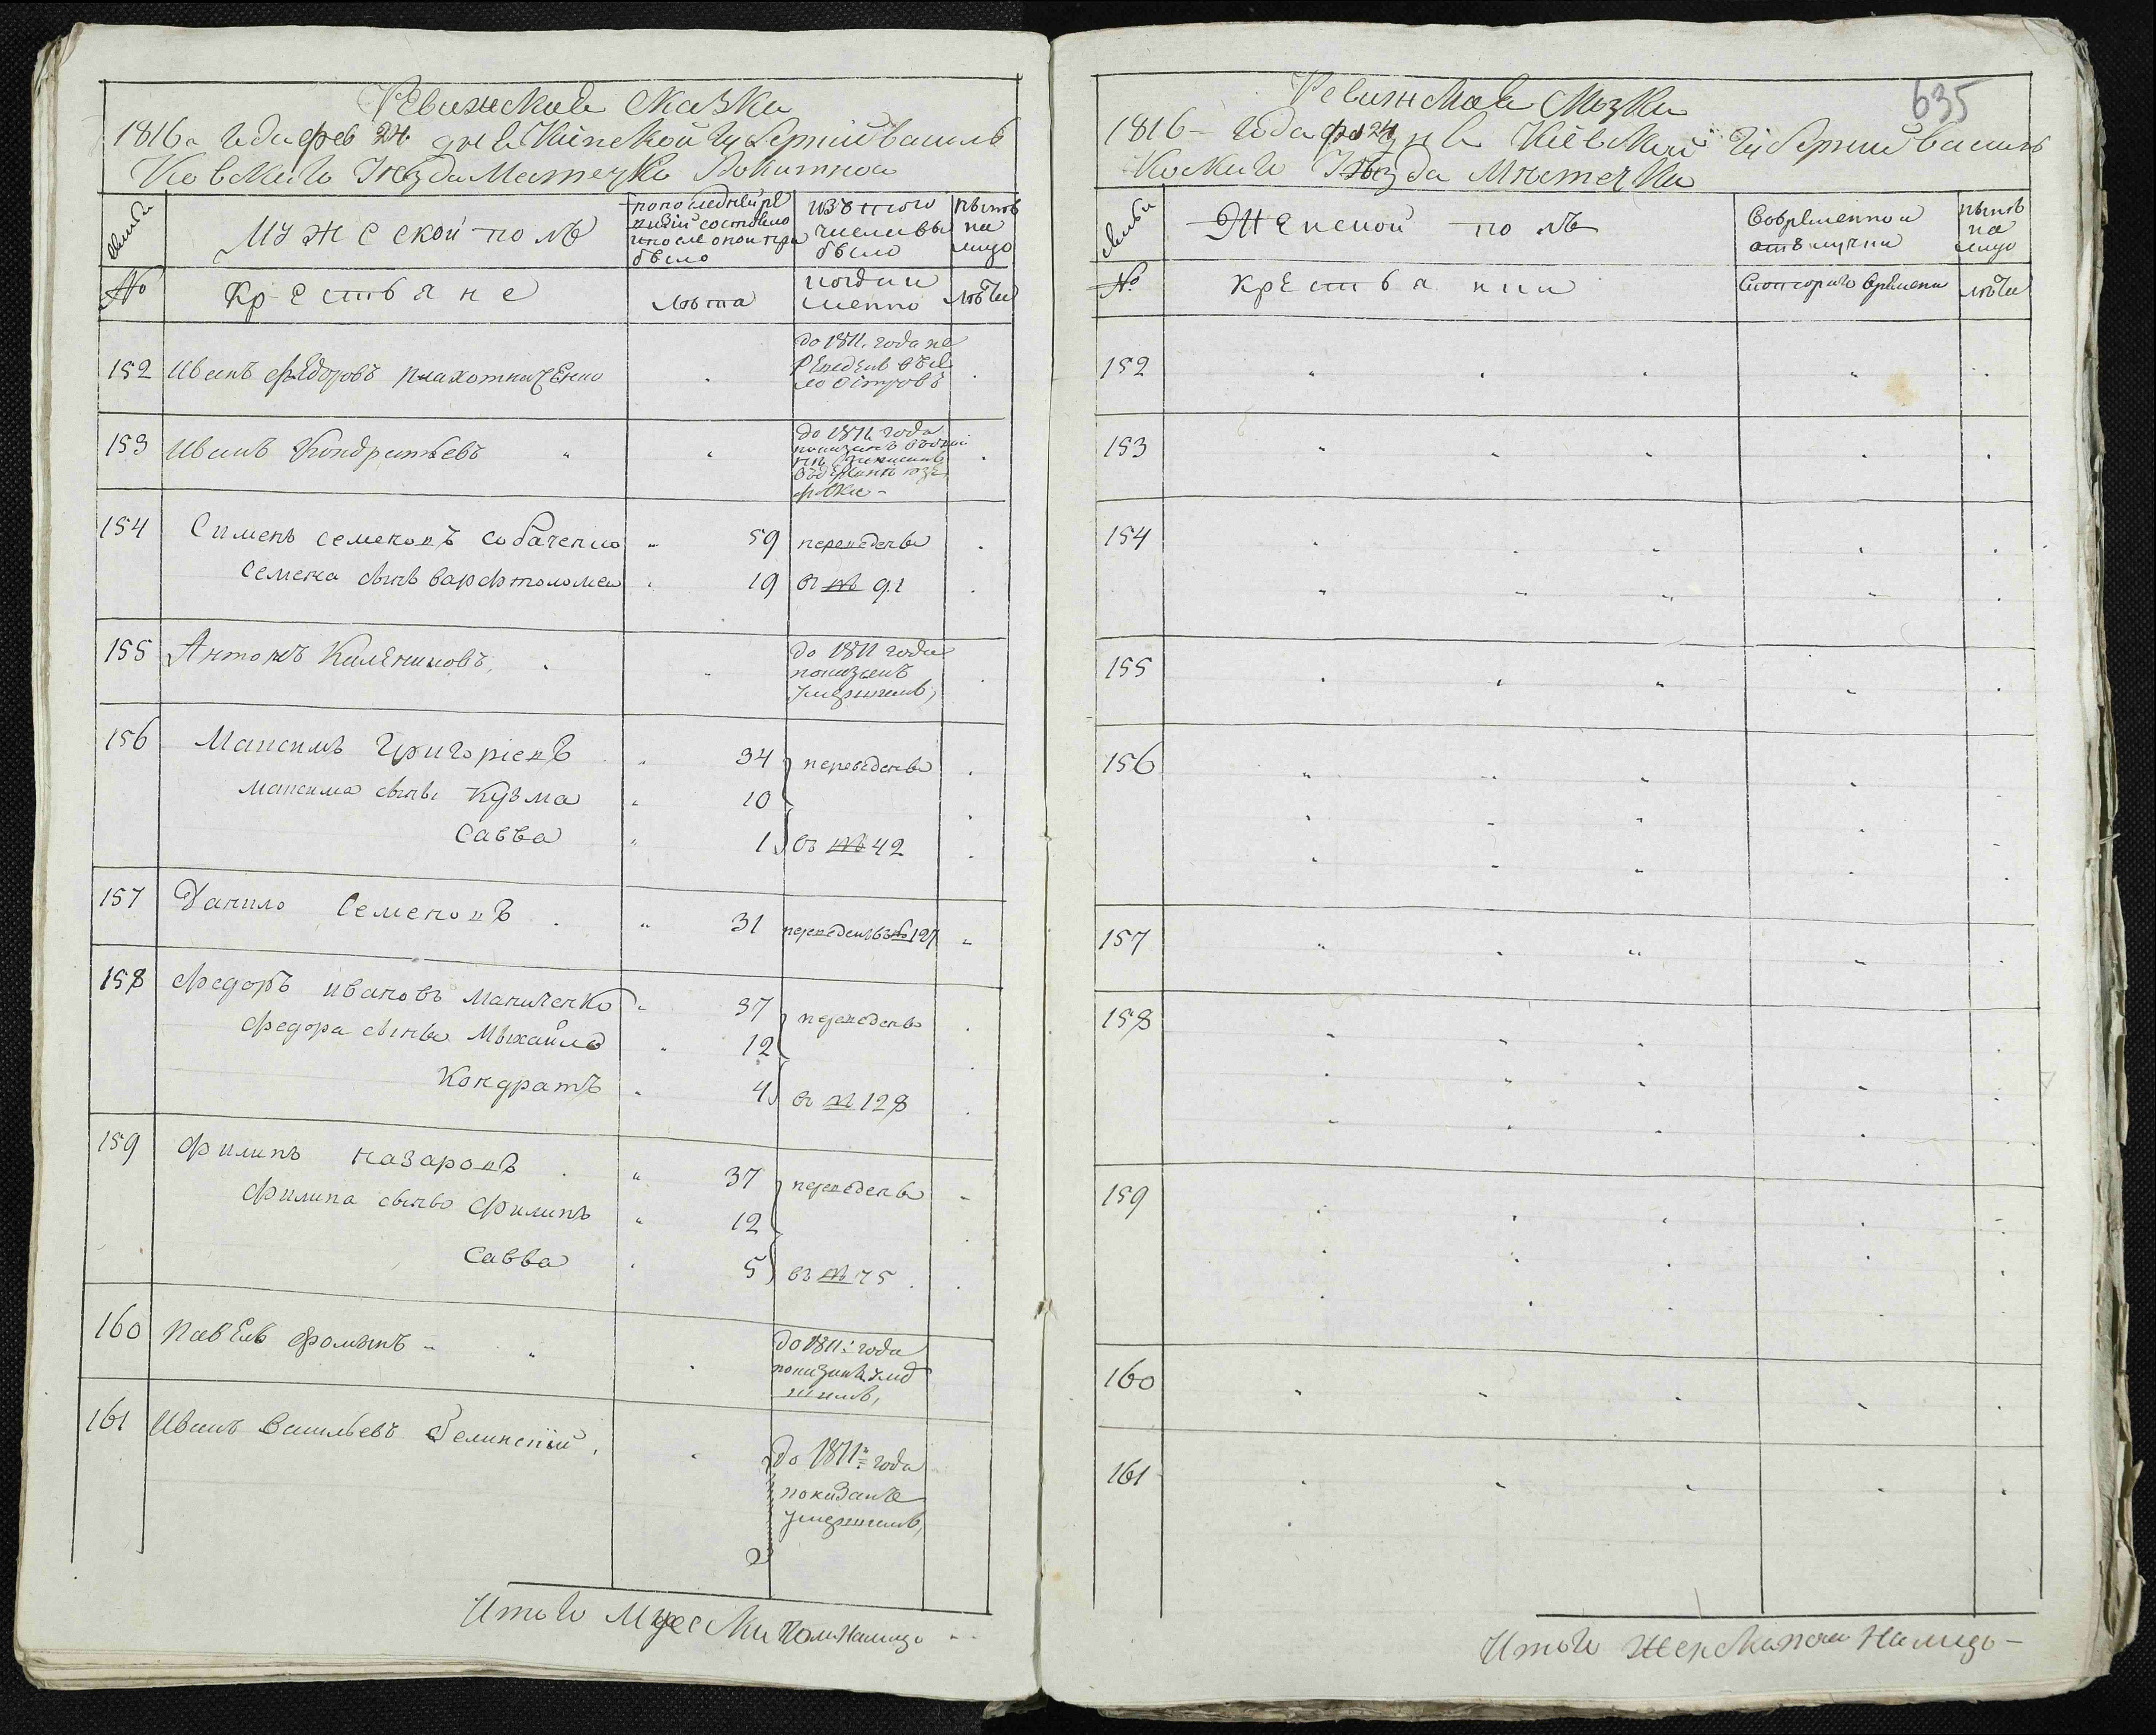 Ревижская сказка
1816 года фев 24 дня Киевской Губернии василь
Ковского Уезда Местечка Рокитноа
семьи
Мужеской полъ
по последней ре
визии состояло
и после оной при
было
изъ того
числа вы
было
нынѣ
на
лицо
№
Крестьяне
лѣта
когда и
менно
лѣта
152 Иванъ Федоровъ
до 1811 года пе
реведенъ въ се
ло Островъ
153 Иванъ Кондратьевъ "
до 1811 года
показанъ
154 Сименъ семеновъ собаченко " 59 переведены
Семена сынъ варфтоломей " 19 въ № 91
155 Антонъ
до 1811 года
показанъ
умершимъ,
156 Максимъ Григоріевъ " 34 переведены
максима сыны Кузма " 10
Савва " 1 въ № 42
157 Данило Семеновъ " 31 переведенъ въ № 127 "
158 Федоръ ивановъ маниченко " 37 переведены
Федора сыны Мыхайло " 12
Кондратъ " 4 въ № 128
159 Филипъ назаровъ " 37 переведены
Филипа сыны Филипъ " 12
Савва " 5 въ № 75
160 Павелъ Фоминъ " "
до 1811: года
показанъ уме
шимъ,
161 Иванъ Васильевъ Белинский
до 1811 года
показанъ
умершимъ,
Итого Мужеска пола Налицо
635
Ревижская Сказка
1816 года фев 24 дня Киевской Губернии василь
Ковского Уезда Местечка
семьи
Женской полъ
Во временной
отлучки
нынѣ
на
лицо
№
крестьянки
С которого времени
лѣта
152
153
154
155
156
157
158
159
160
161
Итого Женска пола Налицо